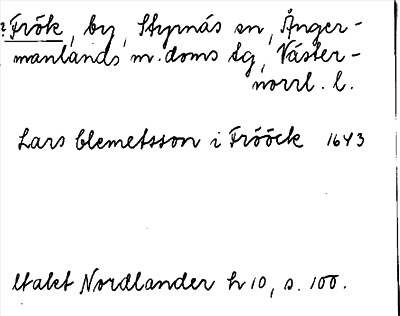 ? Frök, by, Styrnäs sn, Ånger-
manlands m. doms tg, Väster-
norrl. l.
Lars Clemetsson i Frööck 1643
Utakt Nordlander h 10, s. 100.